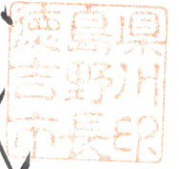 徳島県
吉野川
市長印